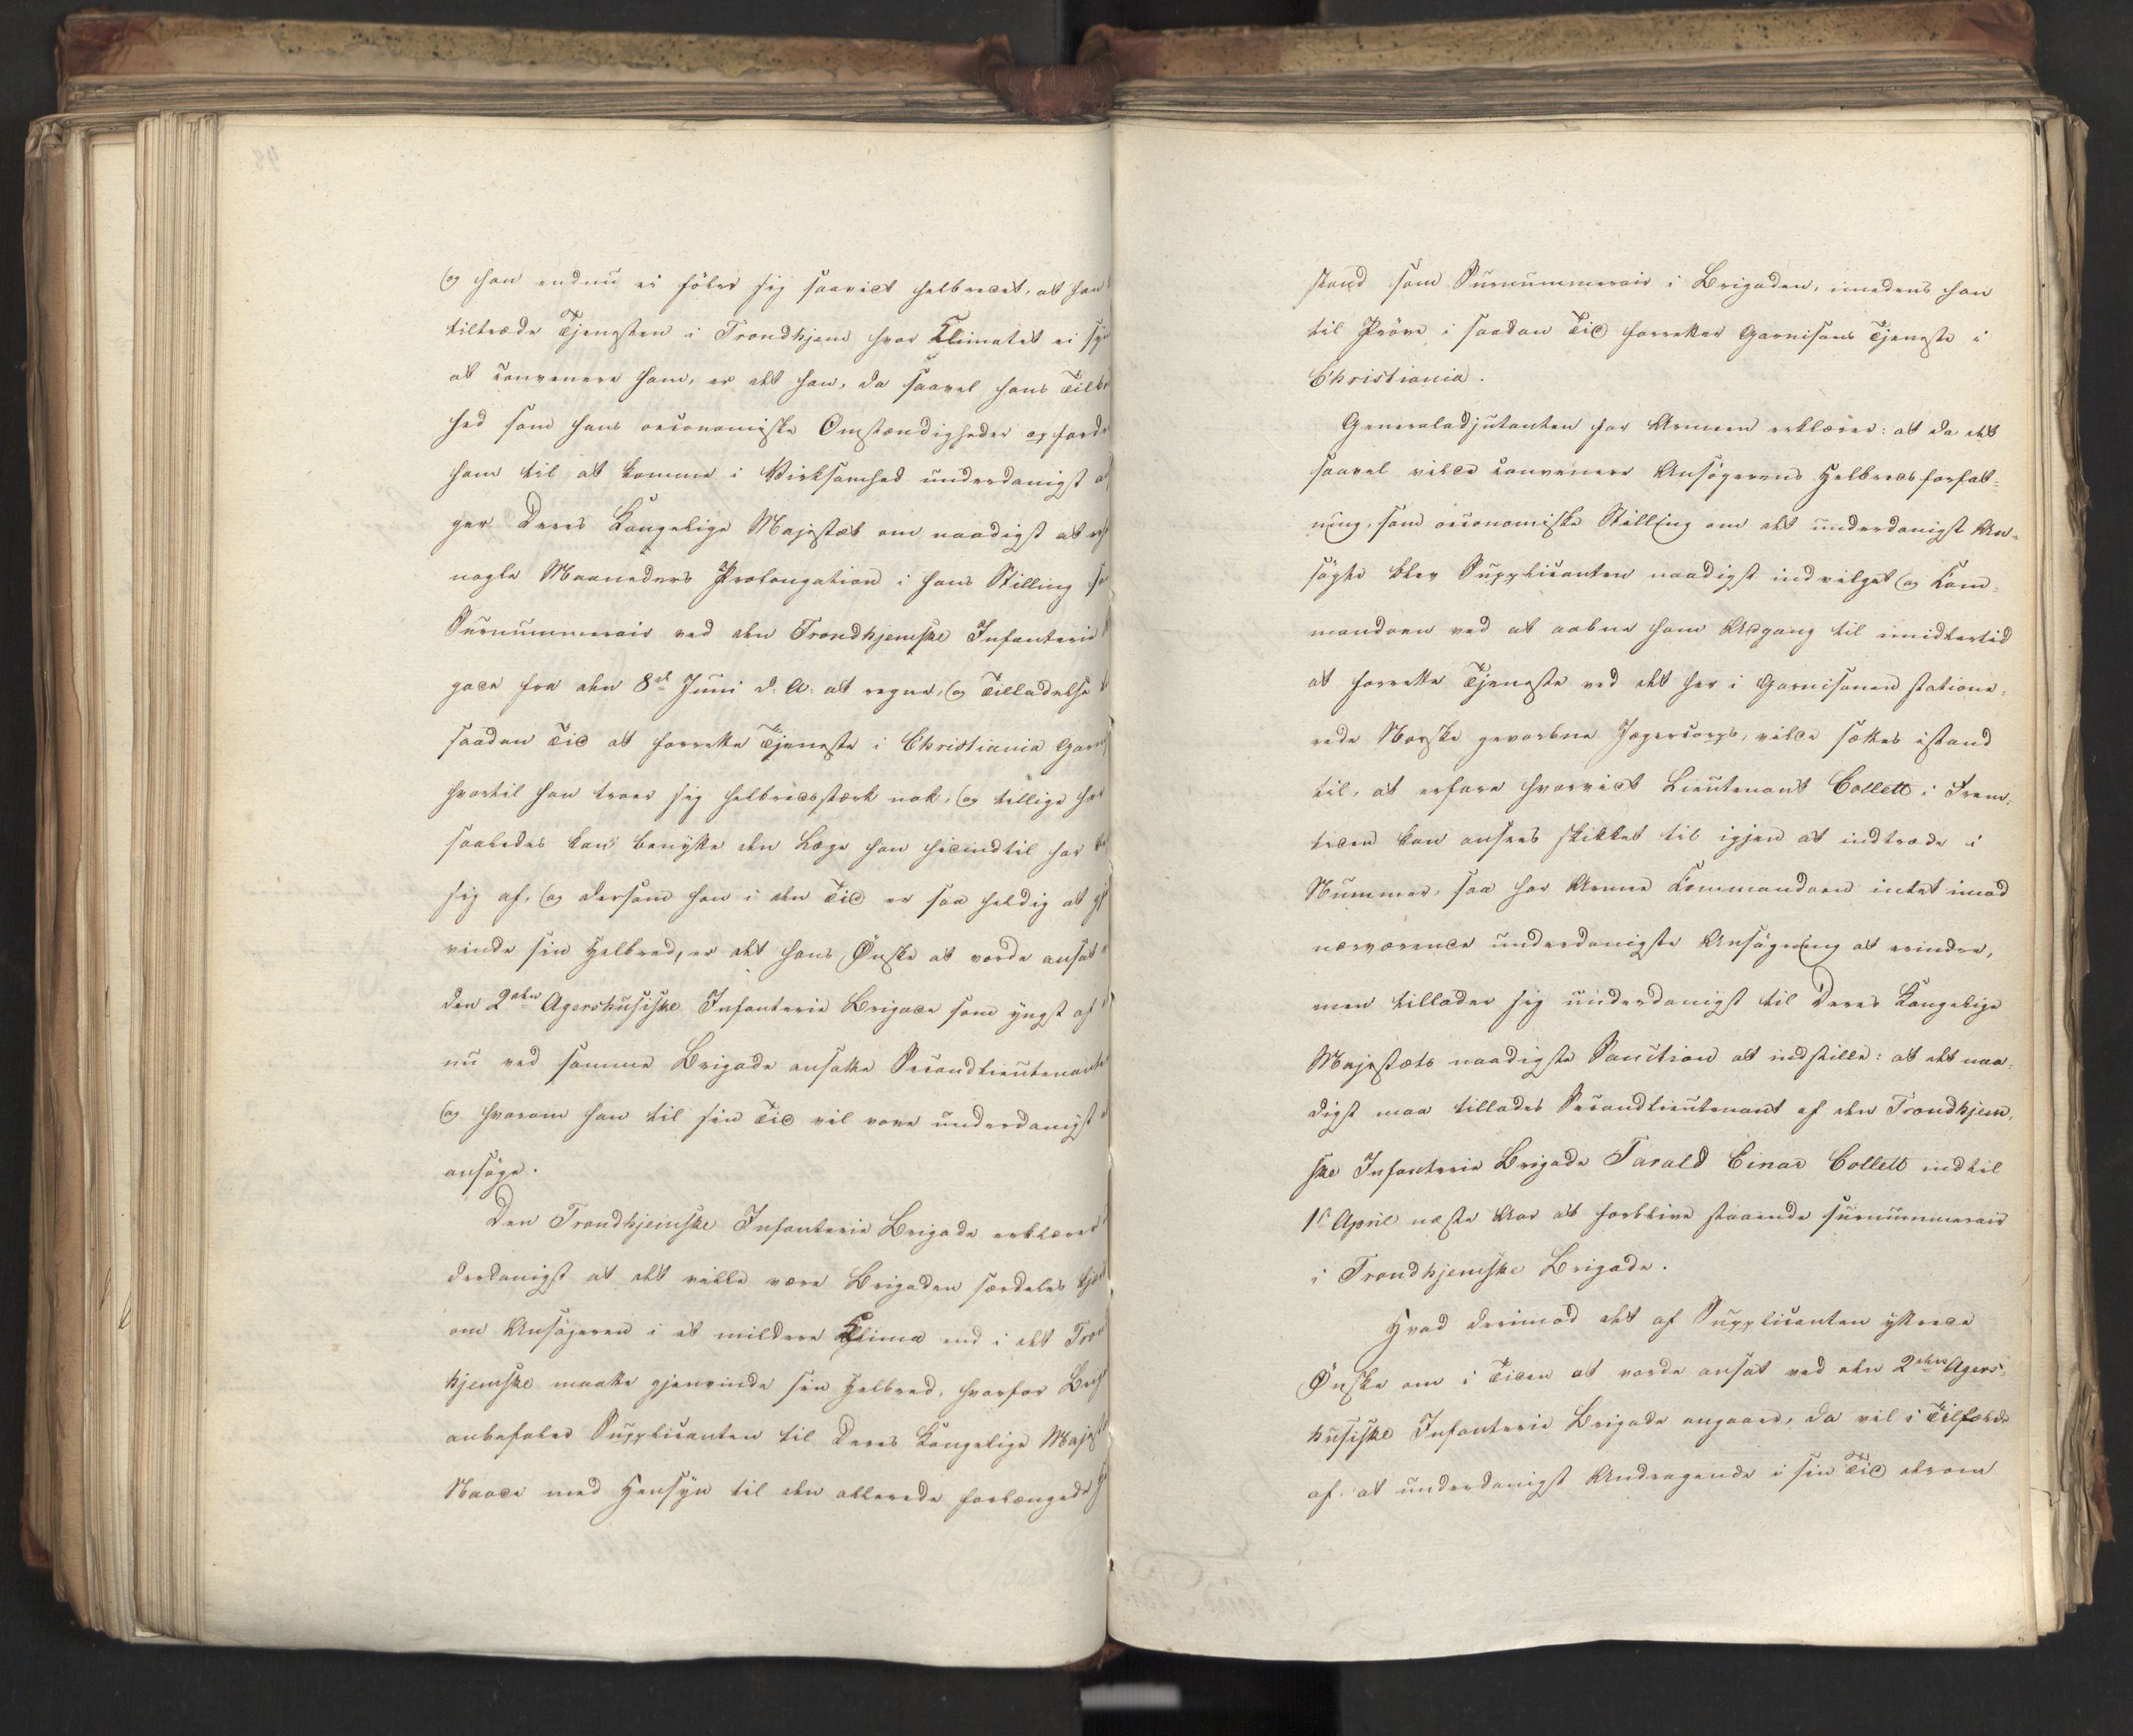 og han endnu ei föler sig saavidt helbredet, at han
tiltræde Tjenesten i Trondhjem hvor Klimatet ei syn
at convenere ham, er det han, da saavel hans Tilbö
hed som hans oeconomiske Omstændigheder opfordr
ham til at komme i Virksomhed underdanigst an
ger Deres Kongelige Majestæt om naadigst at
nogle Maaneders Prolongation i hans Stilling so
Surnummerair ved den Trondhjemske Infanterie
gade fra den 8de Juni d: A: at regne, og Tilladelse
saadan Tid at forrette Tjeneste i Christiania Garni
hvortil han troer sig helbredsstærk nok, og tillige her
saaledes kan benytte den Læge han hidindtil har
sig af, og dersom han i den Tid er saa heldig at gj
vinde sin Helbred, er det hans Önske at vorde ansat
den 2den Agershusiske Infanterie Brigade som yngst af
nu ved samme Brigade ansatte Secondlieutenante
og hvorom han til sin Tid vil vove underdanigst
ansöge.
Den Trondhjemske Infanterie Brigade erklærer
derdanigst at det vilde være Brigaden særdeles kjær
om Ansögeren i et mildere Klima end i det Tron
hjemske maatte gjenvinde sin Helbred, hvorfor Brig
anbefaler Supplicanten til Deres Kongelige Majest
Naade med Hensyn til den allerede forlængede
stand som Surnummerair i Brigaden, imedens han
til Pröve i saadan Tid forretter Garnisons Tjeneste i
Christiania.
Generaladjutanten for Armeen erklærer: at da det
saavel vilde convenere Ansögerens Helbredsforfat-
ning, som oeconomiske Stilling om det underdanigst An-
sögte blev Supplicanten naadigst indvilget og Kom-
mandoen ved at aabne ham Adgang til imidlertid
at forrette Tjeneste ved det her i Garnisonen statione-
rede Norske gevorbne Jægercorps, vilde sættes istand
til, at erfare hvorvidt Lieutenant Collett i Frem-
tiden kan ansees skikket til igjen at indtræde i
Nummer, saa har Armee Kommandoen intet imod
nærværende underdanigste Ansögning at erindre,
men tillader sig underdanigst til Deres Kongelige
Majestæts naadigste Sanction at indstille: at det naa-
digst maa tillades Secondlieutenant af den Trondhjem-
ske Infanterie Brigade Tarald Einar Collett indtil
1st April næste Aar at forblive staaende surnummerair
i Trondhjemske Brigade.
Hvad derimod det af Supplicanten yttrede
Önske om i Tiden at vorde ansat ved den 2den Agers-
husiske Infanterie Brigade angaaer, da vil i Tilfælde
af at underdanigst Andragende i sin Tid derom